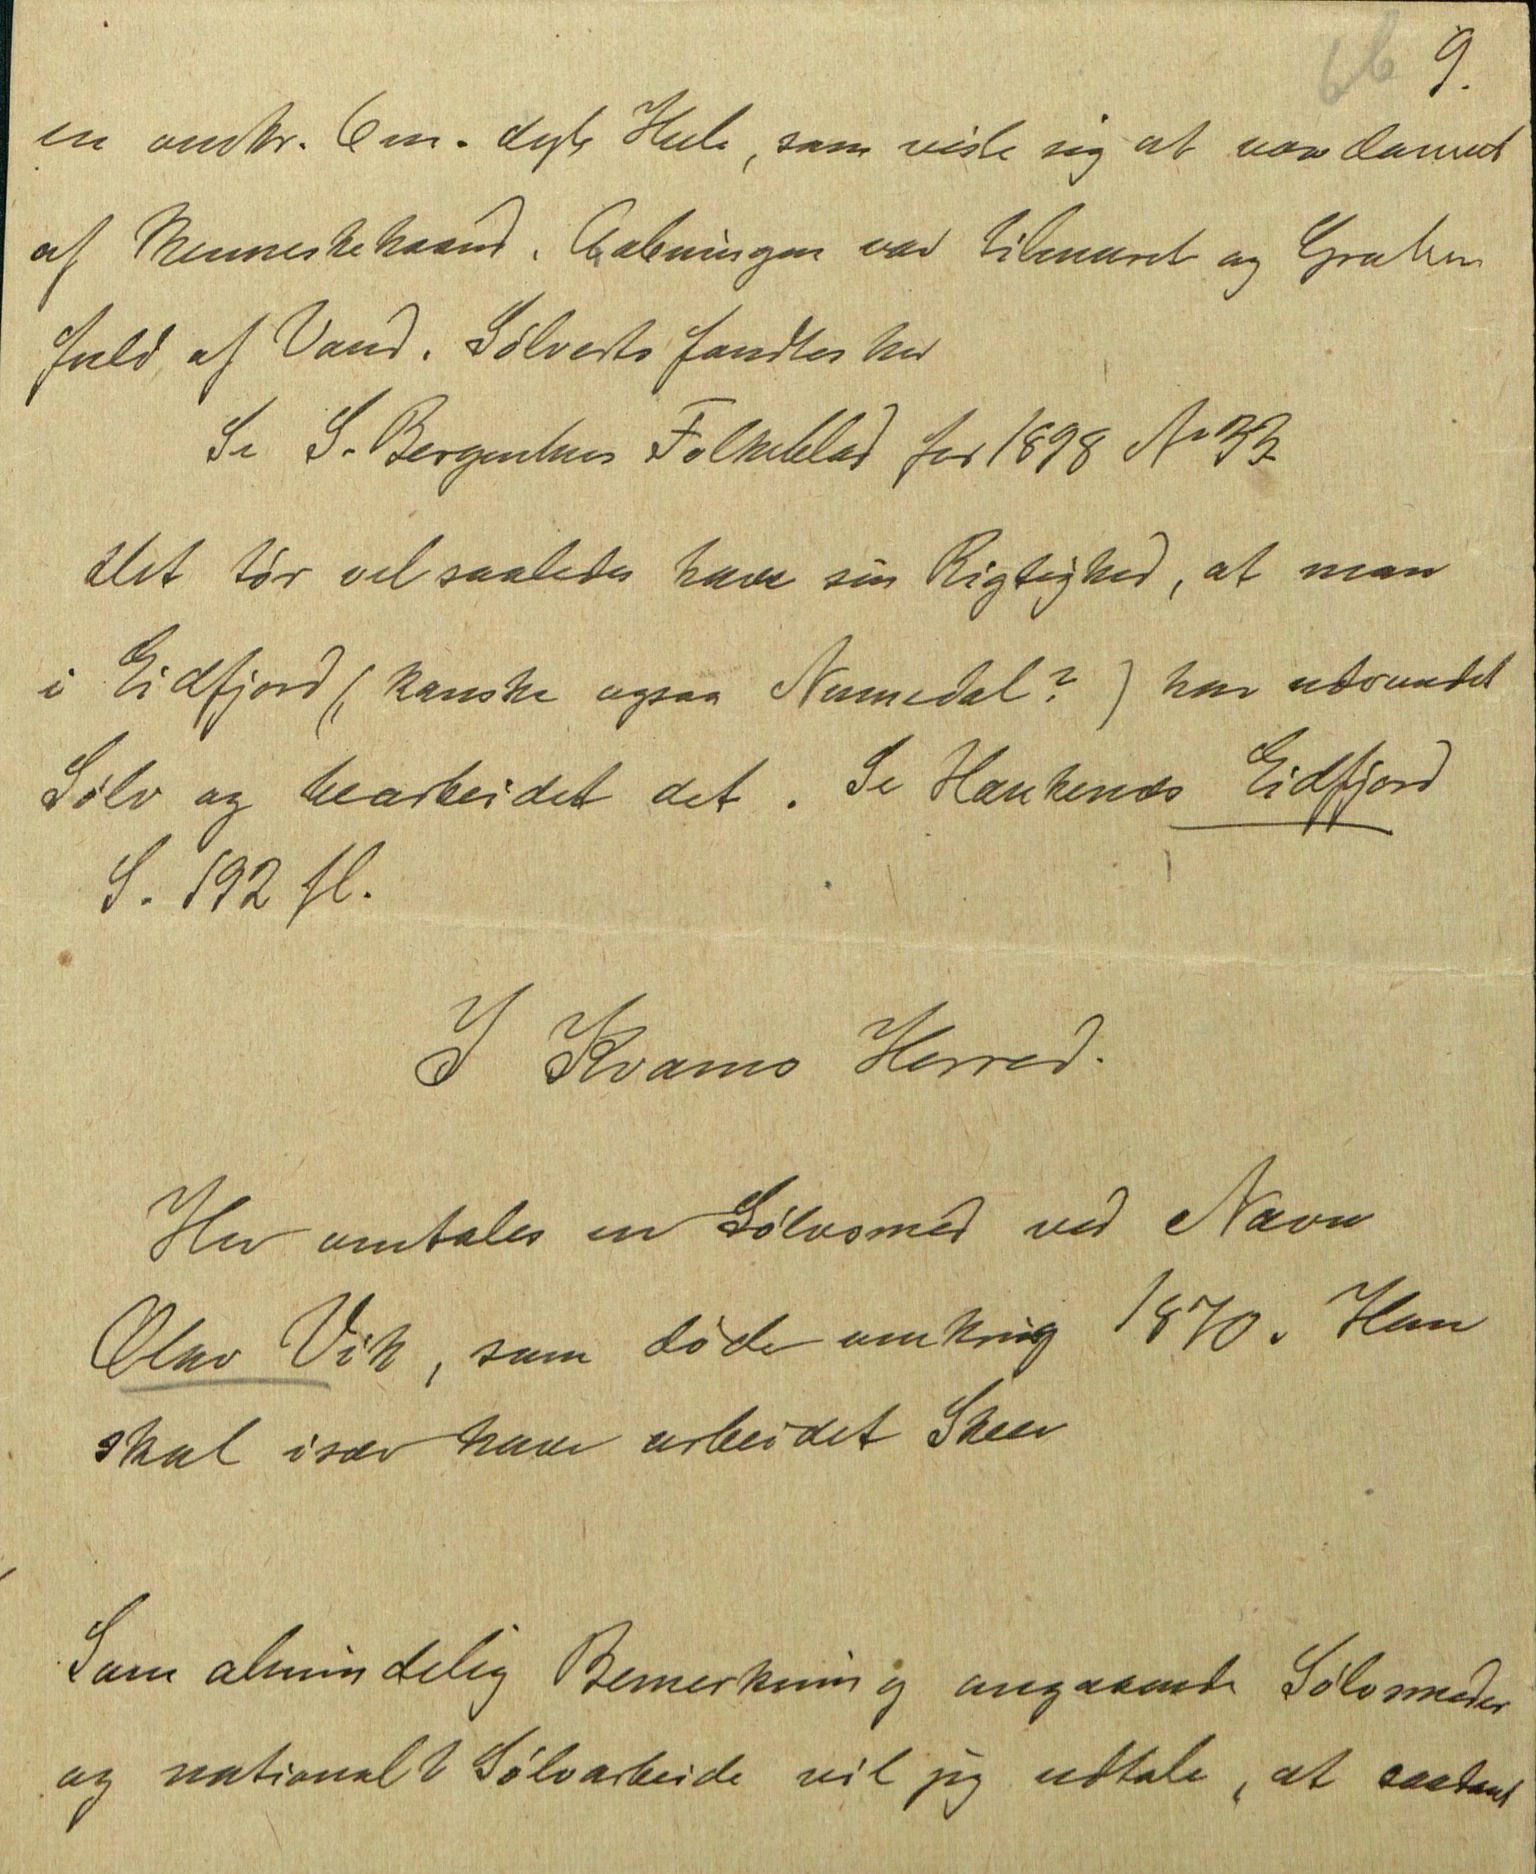 66 9.
en omkr. 6 m. dyb Hule, som viste sig at være dannet
af Menneskehaand. Aabningen var tilmuret og Gruben
fuld af Vand. Sølverts fandtes her
Se S. Bergenhus Folkeblad for 1898 No 33
Det tør vel saaledes have sin Rigtighed, at man
i Eidfjord (kanske ogsaa Numedal?) har udvundet
Sølv og bearbeidet det. Se Haukenæs Eidfjord
S. 192 fl.
I Kvams Herred.
Her omtales en Sølvsmed ved Navn
Olav Vik, som døde omkring 1870. Han
skal især have arbeidet Skeer
Som almindelig Bemerkning angaaende Sølvsmeder
og nationalt Sølvarbeide vil jeg udtale, at saadant